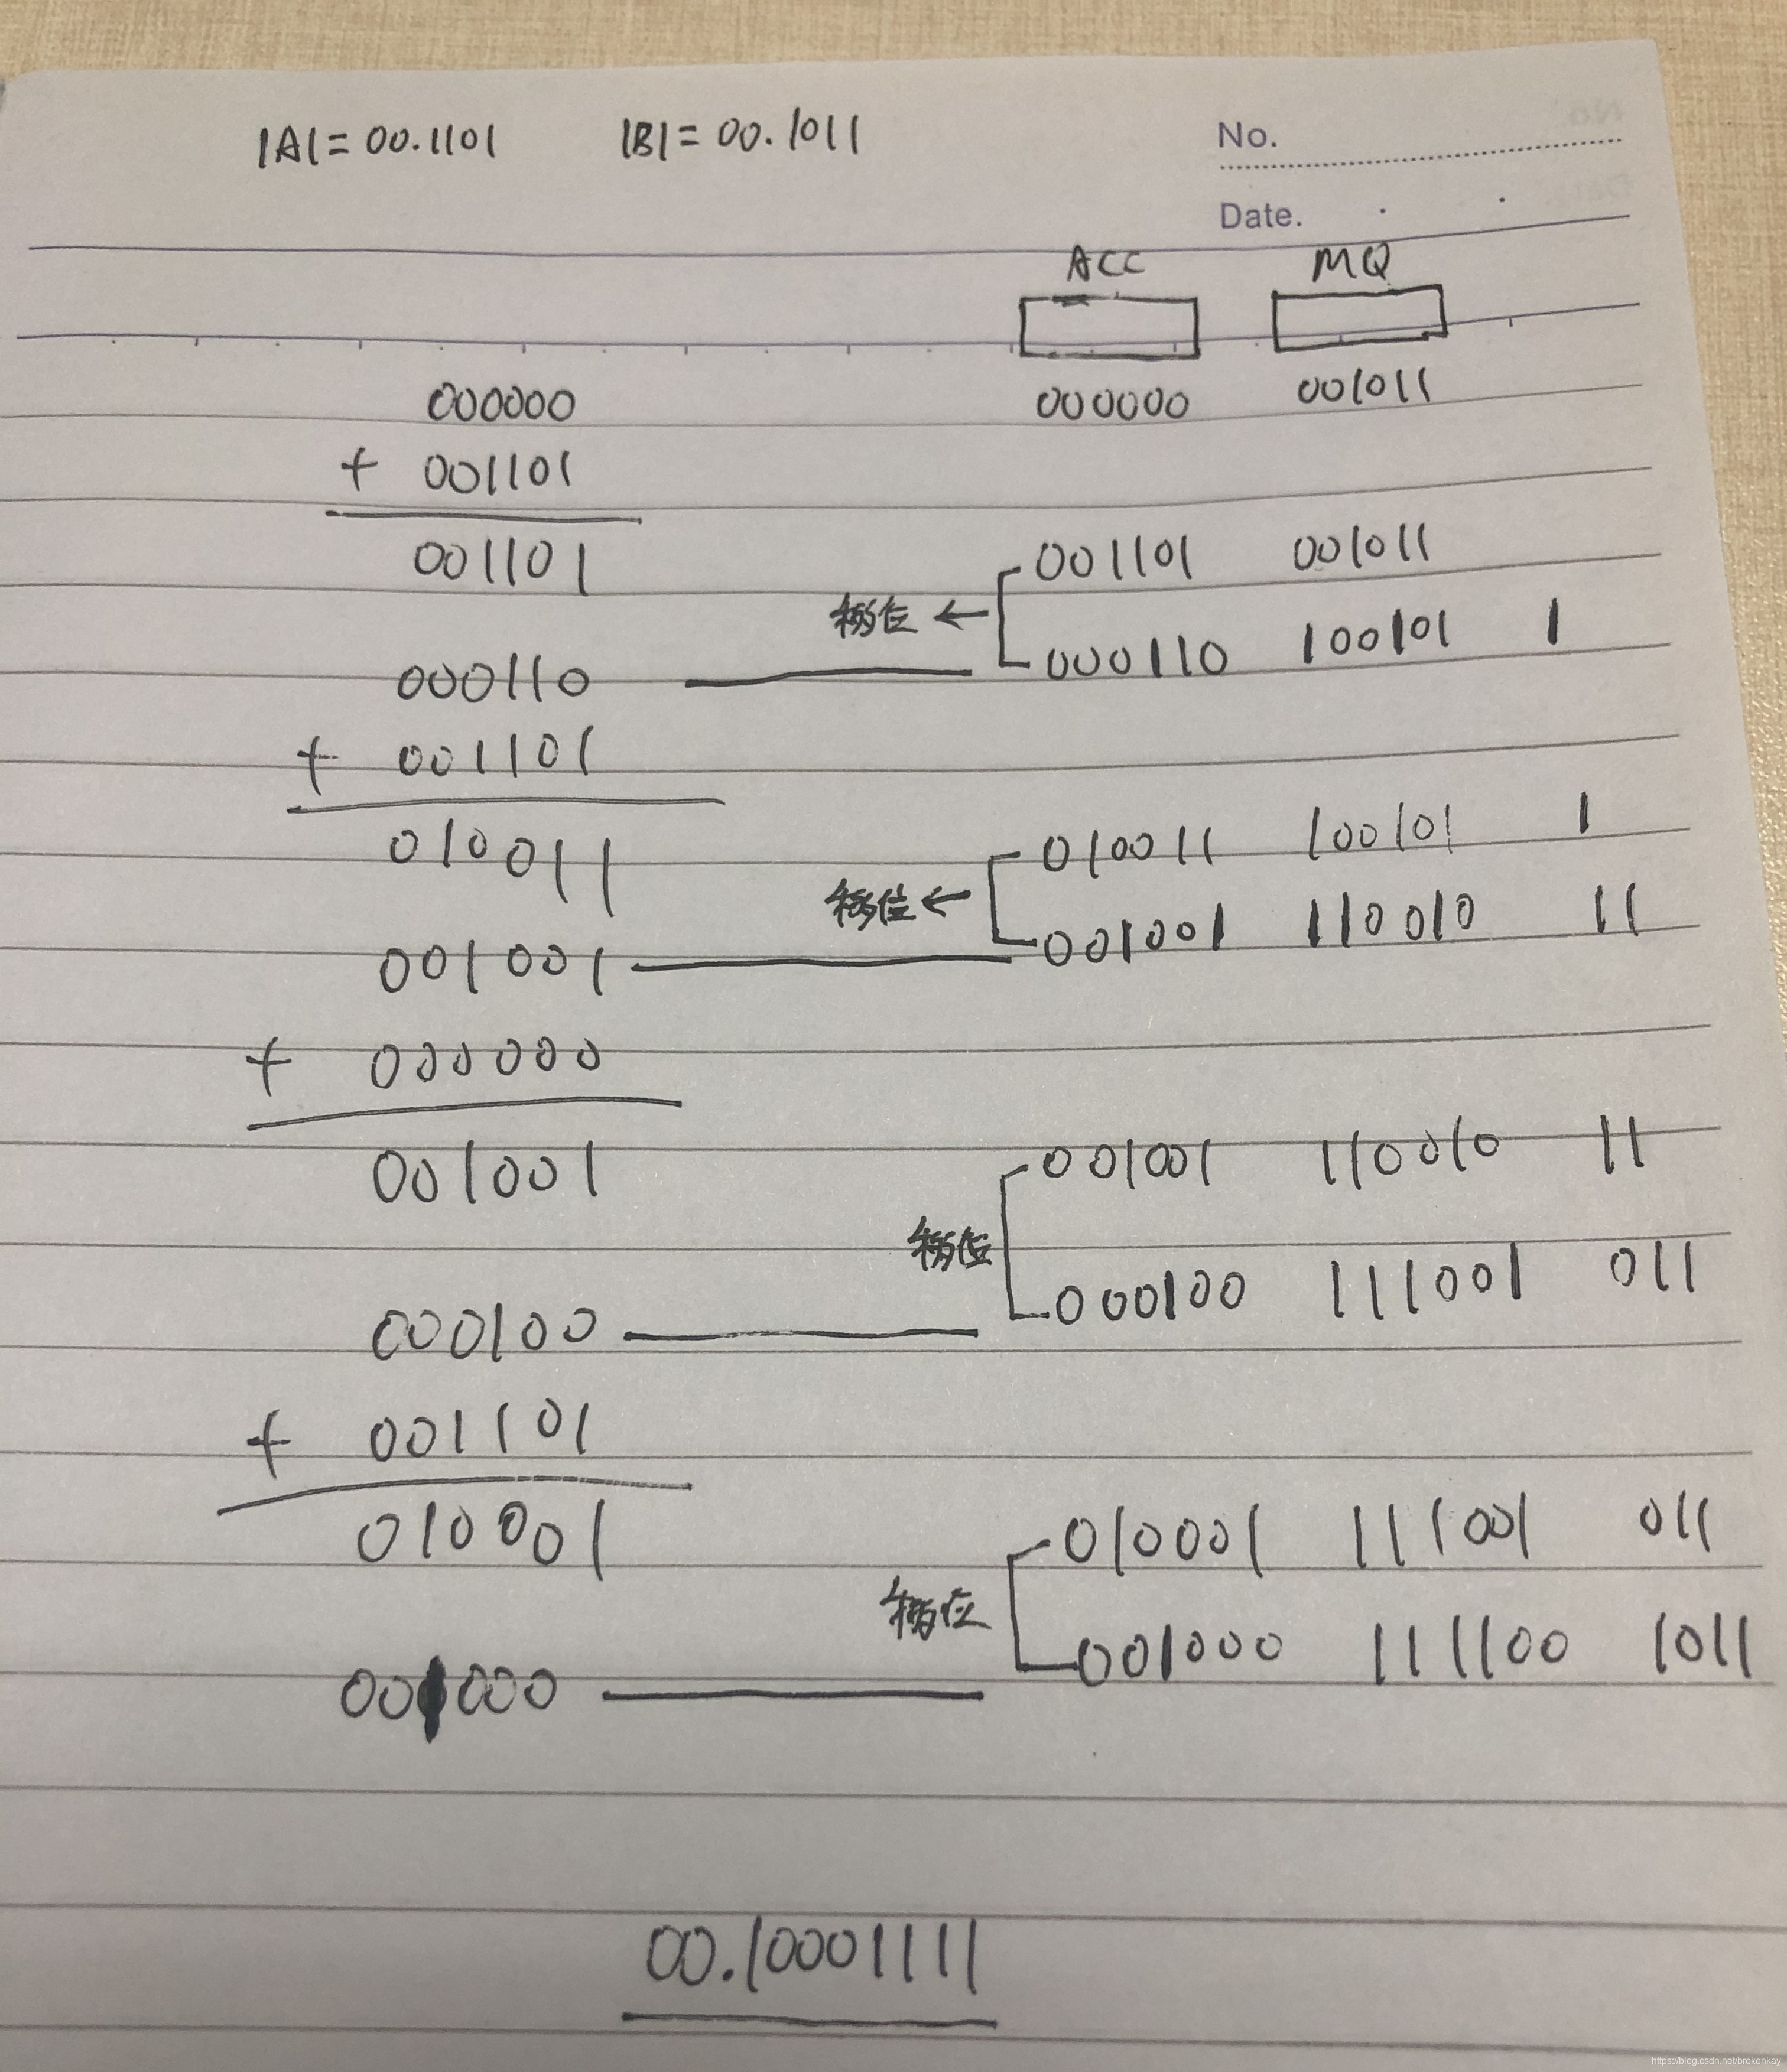 |A|=00.1101 |B|=00.1011
No.
Date.
ACC MQ
000000 000000 001011
+ 001101
001101 001101 001011
移位 ←
000110 000110 100101 1
+ 001101
010011 010011 100101 1
移位 ←
001001 001001 110010 11
+ 000000
001001 001001 110010 11
移位
000100 000100 111001 011
+ 001101
010001 010001 111001 011
移位
001000 001000 111100 1011
00.10001111
https://blog.csdn.net/brokenkey